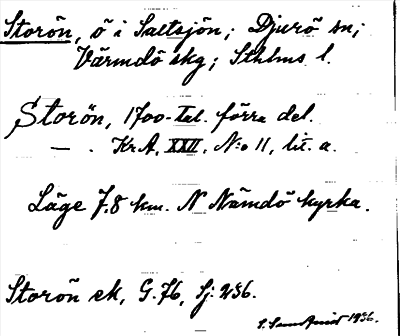 Storön, ö i Saltsjön; Djurö sn;
Värmdö skg; Sthlms l.
Storön, 1700-tal. förra del.
— . Kr.A. XXII. N:o 11, lit. a.
Läge 7,8 km. N Nämdö kyrka.
Storön ek, G. 76, Sj: 236.
1936.